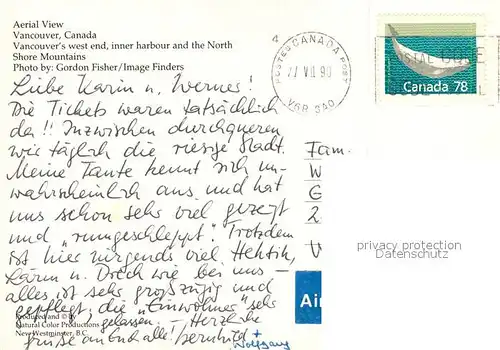 Aerial View
Vancouver, Canada
Vancouver's west end, inner harbour and the North
Shore Mountains
Photo by: Gordon Fisher/Image Finders
Liebe Karin u. Werner!
Die Tickets waren tatsächlich
da!! Inzwischen durchqueren
wir täglich die riesige Stadt.
Meine Tante kennt sich un-
wahrscheinlich aus und hat
uns schon sehr viel gezeigt
und „rumgeschleppt". Trotzdem
ist hier nirgends viel Hektik,
Lärm u. Dreck wie bei uns –
alles ist sehr großzügig und
gepflegt, die „Einwohner" sehr
gelassen. – Herzliche
Grüße an Euch alle! Bernhild
+ Wolfgang
Produced and © by
Natural Color Productions
New Westminster, B.C.
4
POSTES CANADA POST
27 VII 90
V6R 3A0
POSTAL CODE
Canada 78
Fam.
W
G
2
V
privacy protection
Datenschutz
Air